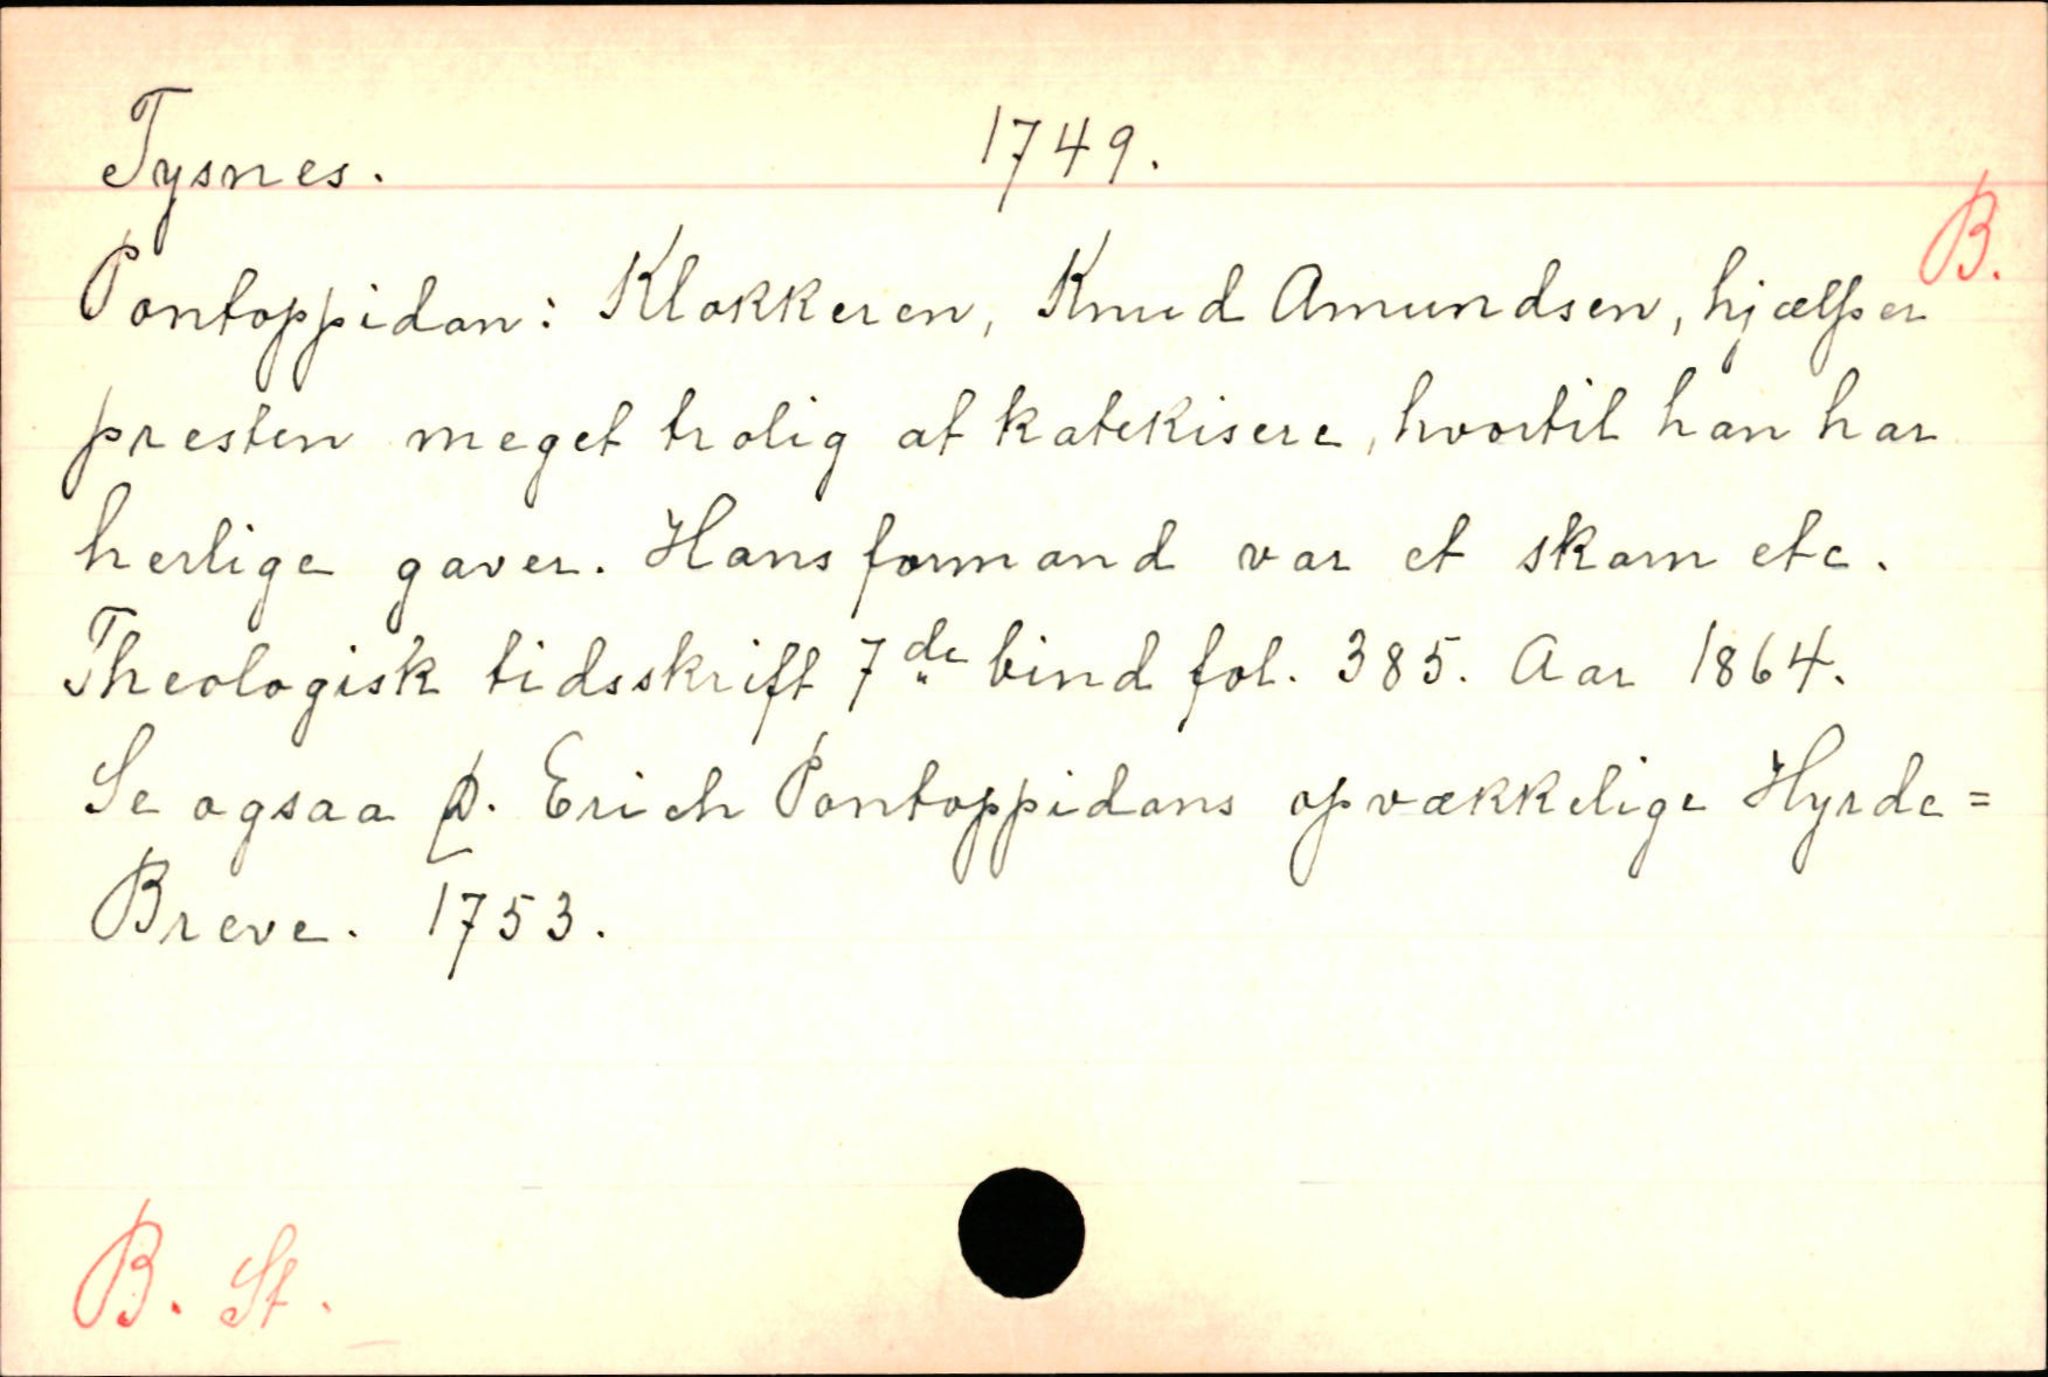 Tysnes. 1749.
B.
Pontoppidan: Klokkeren, Knud Amundsen, hjælper
presten meget trolig at katekisere, hvortil han har
herlige gaver. Hans formand var et skarn etc.
Theologisk tidsskrift 7de bind fol. 385. Aar 1864.
Se ogsaa D. Erich Pontoppidans opvækkelige Hyrde=
Breve. 1753.
B. St.